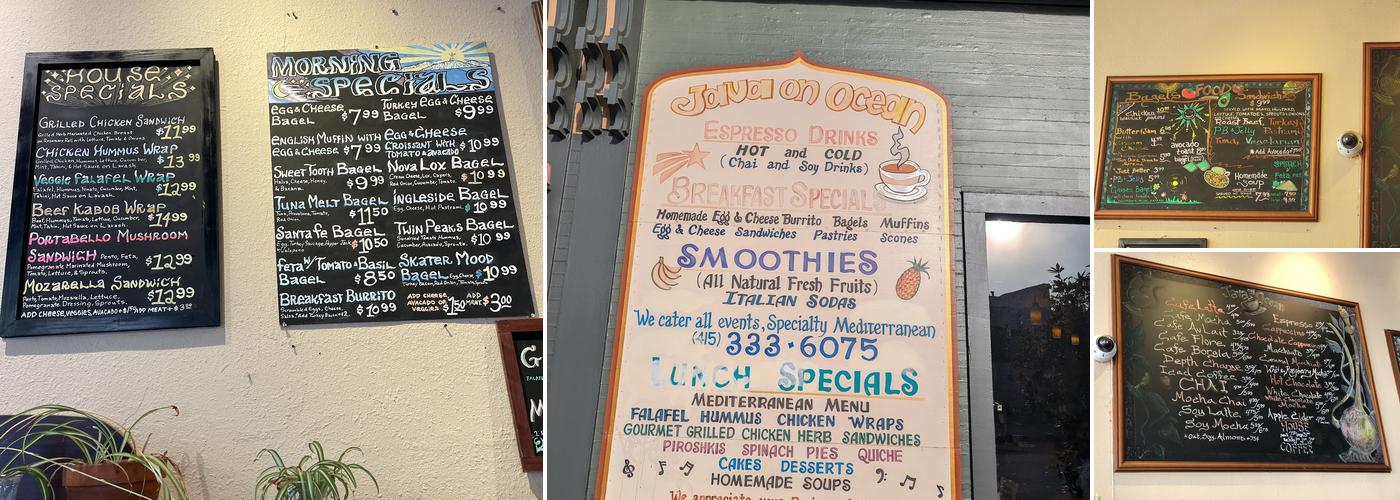 HOUSE
SPECIALS
GRILLED CHICKEN SANDWICH
Grilled Herb Marinated Chicken Breast $11.99
on Rosemary Roll with Lettuce, Tomato & Onions
CHICKEN HUMMUS WRAP
Grilled Chicken, Hummus, Lettuce, Cucumber, $13.99
Mint, Tahini, & Hot Sauce on Lavash
Veggie FALAFEL WRAP
Falafel, Hummus, Tomato, Cucumber, Mint, $12.99
Tahini, Hot Sauce on Lavash.
BEEF KABOB WRAP
Beef, Hummus, Tomato, Lettuce, Cucumber, $14.99
Mint, Tahini, & Hot Sauce on Lavash.
PORTABELLO MUSHROOM
SANDWICH Pesto, Feta,
Pomegranate Marinated Mushroom, $12.99
Tomato, Lettuce, & Sprouts.
MOZARELLA SANDWICH
Pesto, Tomato, Mozzarella, Lettuce, $12.99
Pomegranate Dressing, Sprouts,
ADD CHEESE, VEGGIES, AVOCADO + $1.50 ADD MEAT + $3.00
MORNING
SPECIALS
EGG & CHEESE
BAGEL $7.99
ENGLISH MUFFIN WITH
EGG & CHEESE $7.99
SWEET TOOTH BAGEL
Halva, Cheese, Honey, $9.99
& Banana.
TUNA MELT BAGEL
Tuna, Provolone, Tomato, $11.50
Red Onion.
SANTA FE BAGEL
Egg, Turkey Sausage, Pepper Jack $10.50
w/ Jalapeno
FETA W/ TOMATO & BASIL
$8.50
BREAKFAST BURRITO
Scrambled Eggs, Cheese, $10.99
Salsa. Add Turkey Bacon +2.
TURKEY EGG & CHEESE
BAGEL $9.99
EGG & CHEESE
CROISSANT WITH $10.99
TOMATO & AVOCADO
NOVA LOX BAGEL
Cream Cheese, Lox, Capers, $10.99
Red Onion, Cucumber, Tomato.
INGLESIDE BAGEL
Egg, Cheese, Hot Pastrami. $10.99
TWIN PEAKS BAGEL
Sundried Tomato Hummus, $10.99
Cucumber, Avocado, Sprouts.
SKATER MOOD
BAGEL Egg, Cheese, $10.99
Turkey Bacon, Red Onion, Tomato, Sprouts
ADD CHEESE
AVOCADO OR $1.50
VEGGIES
ADD MEAT $3.00
Java on Ocean
ESPRESSO DRINKS
HOT and COLD
(Chai and Soy Drinks)
BREAKFAST SPECIAL
Homemade Egg & Cheese Burrito Bagels Muffins
Egg & Cheese Sandwiches Pastries Scones
SMOOTHIES
(All Natural Fresh Fruits)
ITALIAN SODAS
We cater all events, Specialty Mediterranean
(415) 333·6075
LUNCH SPECIALS
MEDITERRANEAN MENU
FALAFEL HUMMUS CHICKEN WRAPS
GOURMET GRILLED CHICKEN HERB SANDWICHES
PIROSHKIS SPINACH PIES QUICHE
CAKES DESSERTS
HOMEMADE SOUPS
We appreciate your
Bagels
FOOD
Sandwiches
$9.99
Roast Beef, Turkey
PB & Jelly Pastrami
Tuna, Vegetarian
avocado
toast
bagel
Homemade
SOUP
SPINACH
Feta
Cafe Latte
Cafe Mocha
Cafe Au Lait
Cafe Flore
Cafe Borgia
Depth Charge
Iced Coffee
CHAI
Mocha Chai
Soy Latte
Soy Mocha
+Oat, Soy, Almond +75¢
Espresso
Cappuccino
Chocolate Cappuccino
Macchiato
Caramel Macchiato
Hot Chocolate
White Chocolate
White Chocolate
Mocha
Apple Cider
HOUSE
COFFEE